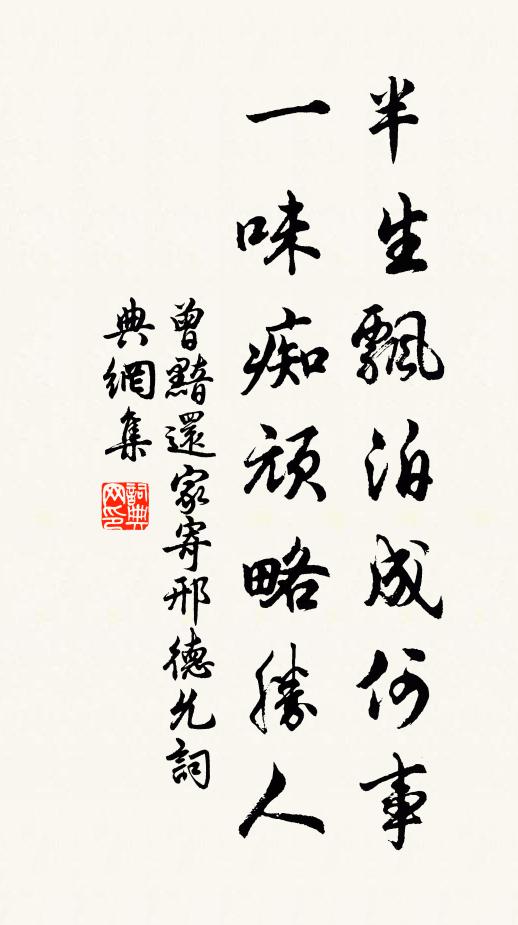 半生飄泊成何事
一味痴頑略勝人
曾黯還家寄邢德允詞
典網集
詞典
网印